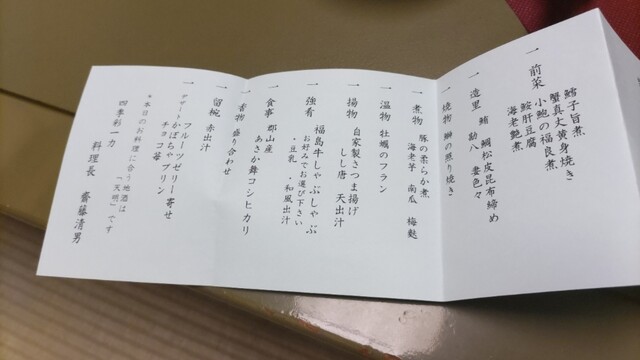 一 前菜 鱈子旨煮
蟹真丈黄身焼き
小鮑の福良煮
鮟肝豆腐
海老艶煮
一 造里 鮪 勘八 鯛松皮昆布締め 妻色々
一 焼物 鰤の照り焼き
一 煮物 豚の柔らか煮
海老芋 南瓜 梅麩
一 温物 牡蠣のフラン
一 揚物 自家製さつま揚げ
しし唐 天出汁
一 強肴 福島牛しゃぶしゃぶ
お好みでお選び下さい
・豆乳 ・和風出汁
一 食事 郡山産
あさか舞コシヒカリ
一 香物 盛り合わせ
一 留椀 赤出汁
一 デザート フルーツゼリー寄せ
かぼちゃプリン
チョコ苺
*本日のお料理に合う地酒は
「天明」です
四季彩一力 料理長 齋藤清男